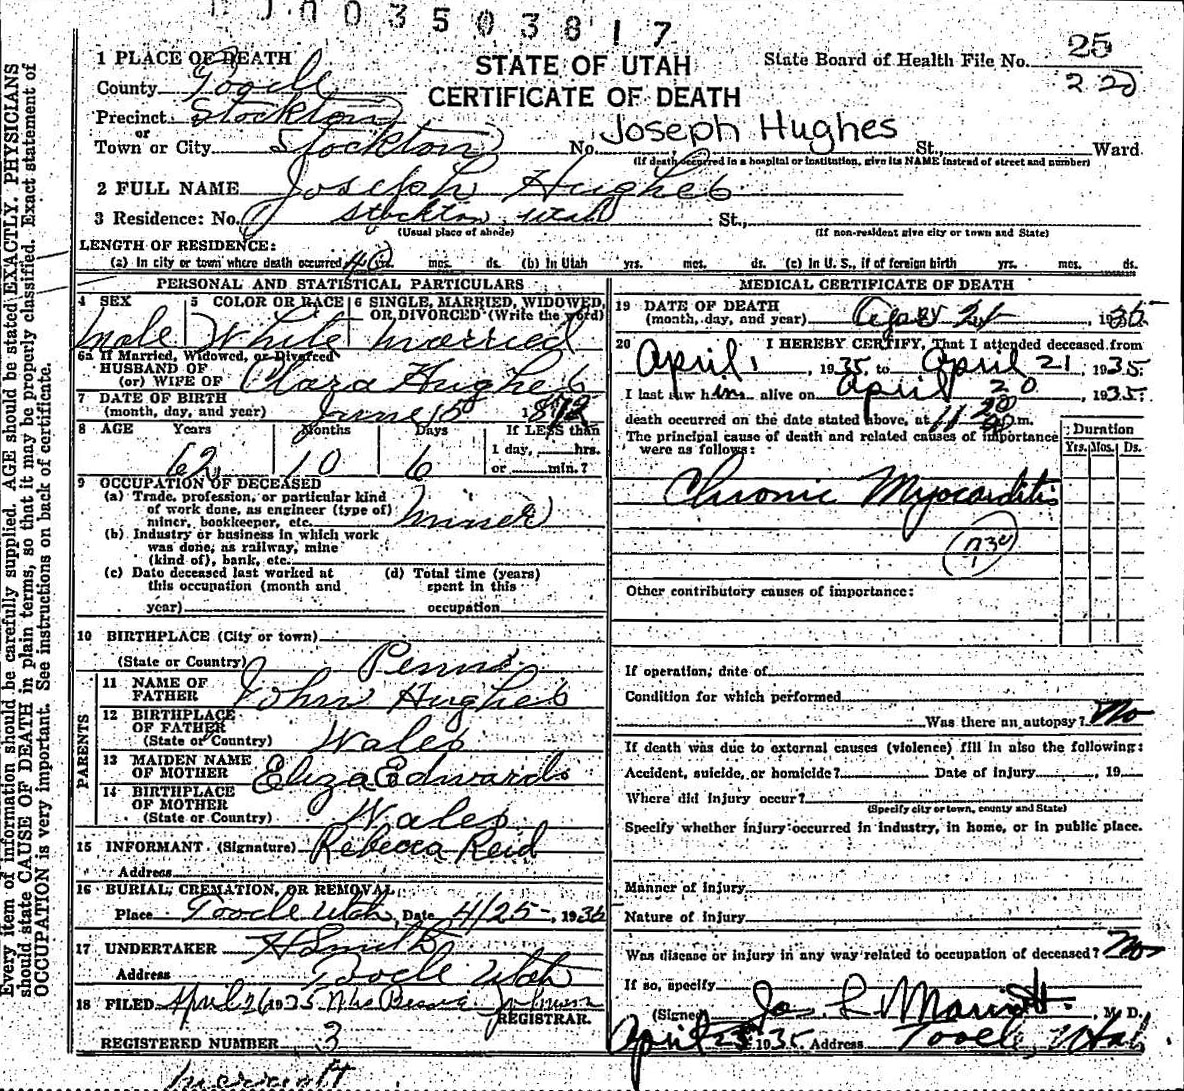 0 0 3 5 0 3 8 1 7
1 PLACE OF DEATH
County Tooele
Precinct Stockton
or
Town or City Stockton
STATE OF UTAH
CERTIFICATE OF DEATH
State Board of Health File No. 25
220
Joseph Hughes
No. St., Ward
(If death occurred in a hospital or institution, give its NAME instead of street and number)
2 FULL NAME Joseph Hughes
3 Residence: No. Stockton, Utah St.,
(Usual place of abode) (If non-resident give city or town and State)
LENGTH OF RESIDENCE:
(a) In city or town where death occurred 40 yrs. mos. ds. (b) In Utah yrs. mos. ds. (c) in U. S., if of foreign birth yrs. mos. ds.
PERSONAL AND STATISTICAL PARTICULARS
4 SEX 5 COLOR OR RACE 6 SINGLE, MARRIED, WIDOWED,
OR DIVORCED (Write the word)
Male White married
6a If Married, Widowed, or Divorced
HUSBAND OF
(or) WIFE OF Clara Hughes
7 DATE OF BIRTH
(month, day, and year) June 15 1872
8 AGE Years Months Days If LESS than
1 day, hrs.
62 10 6 or min.?
9 OCCUPATION OF DECEASED
(a) Trade, profession, or particular kind
of work done, as engineer (type of)
miner, bookkeeper, etc. miner
(b) Industry or business in which work
was done, as railway, mine
(kind of), bank, etc.
(c) Date deceased last worked at (d) Total time (years)
this occupation (month and spent in this
year) occupation
10 BIRTHPLACE (City or town)
(State or Country) Penna
PARENTS
11 NAME OF
FATHER John Hughes
12 BIRTHPLACE
OF FATHER
(State or Country) Wales
13 MAIDEN NAME
OF MOTHER Eliza Edwards
14 BIRTHPLACE
OF MOTHER
(State or Country) Wales
15 INFORMANT (Signature) Rebecca Reid
Address
16 BURIAL, CREMATION, OR REMOVAL,
Place Tooele Utah Date 4/25-, 1935
17 UNDERTAKER H Smith
Address Tooele Utah
18 FILED April 26 1935
REGISTRAR.
REGISTERED NUMBER 3
MEDICAL CERTIFICATE OF DEATH
19 DATE OF DEATH
(month, day, and year) April 21, 1935
20 I HEREBY CERTIFY, That I attended deceased from
April 1, 1935, to April 21, 1935.
I last saw him alive on April 20, 1935.
death occurred on the date stated above, at m.
The principal cause of death and related causes of importance
were as follows:
Duration
Yrs. Mos. Ds.
Chronic Myocarditis
Other contributory causes of importance:
If operation, date of
Condition for which performed
Was there an autopsy? No
If death was due to external causes (violence) fill in also the following:
Accident, suicide, or homicide? Date of injury , 19
Where did injury occur?
(Specify city or town, county and State)
Specify whether injury occurred in industry, in home, or in public place.
Manner of injury
Nature of injury
Was disease or injury in any way related to occupation of deceased? No
If so, specify
(Signed) Jos. L. , M. D.
April 23 1935 Address Tooele, Utah
Every item of information should be carefully supplied. AGE should be stated EXACTLY. PHYSICIANS
should state CAUSE OF DEATH in plain terms, so that it may be properly classified. Exact statement of
OCCUPATION is very important. See instructions on back of certificate.